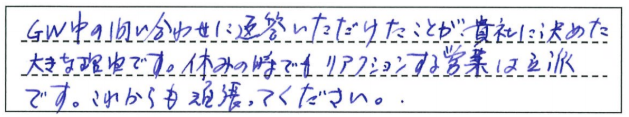 GW中の問い合わせに返答いただけたことが貴社に決めた
大きな理由です。休みの時でもリアクションする営業は立派
です。これからも頑張ってください。